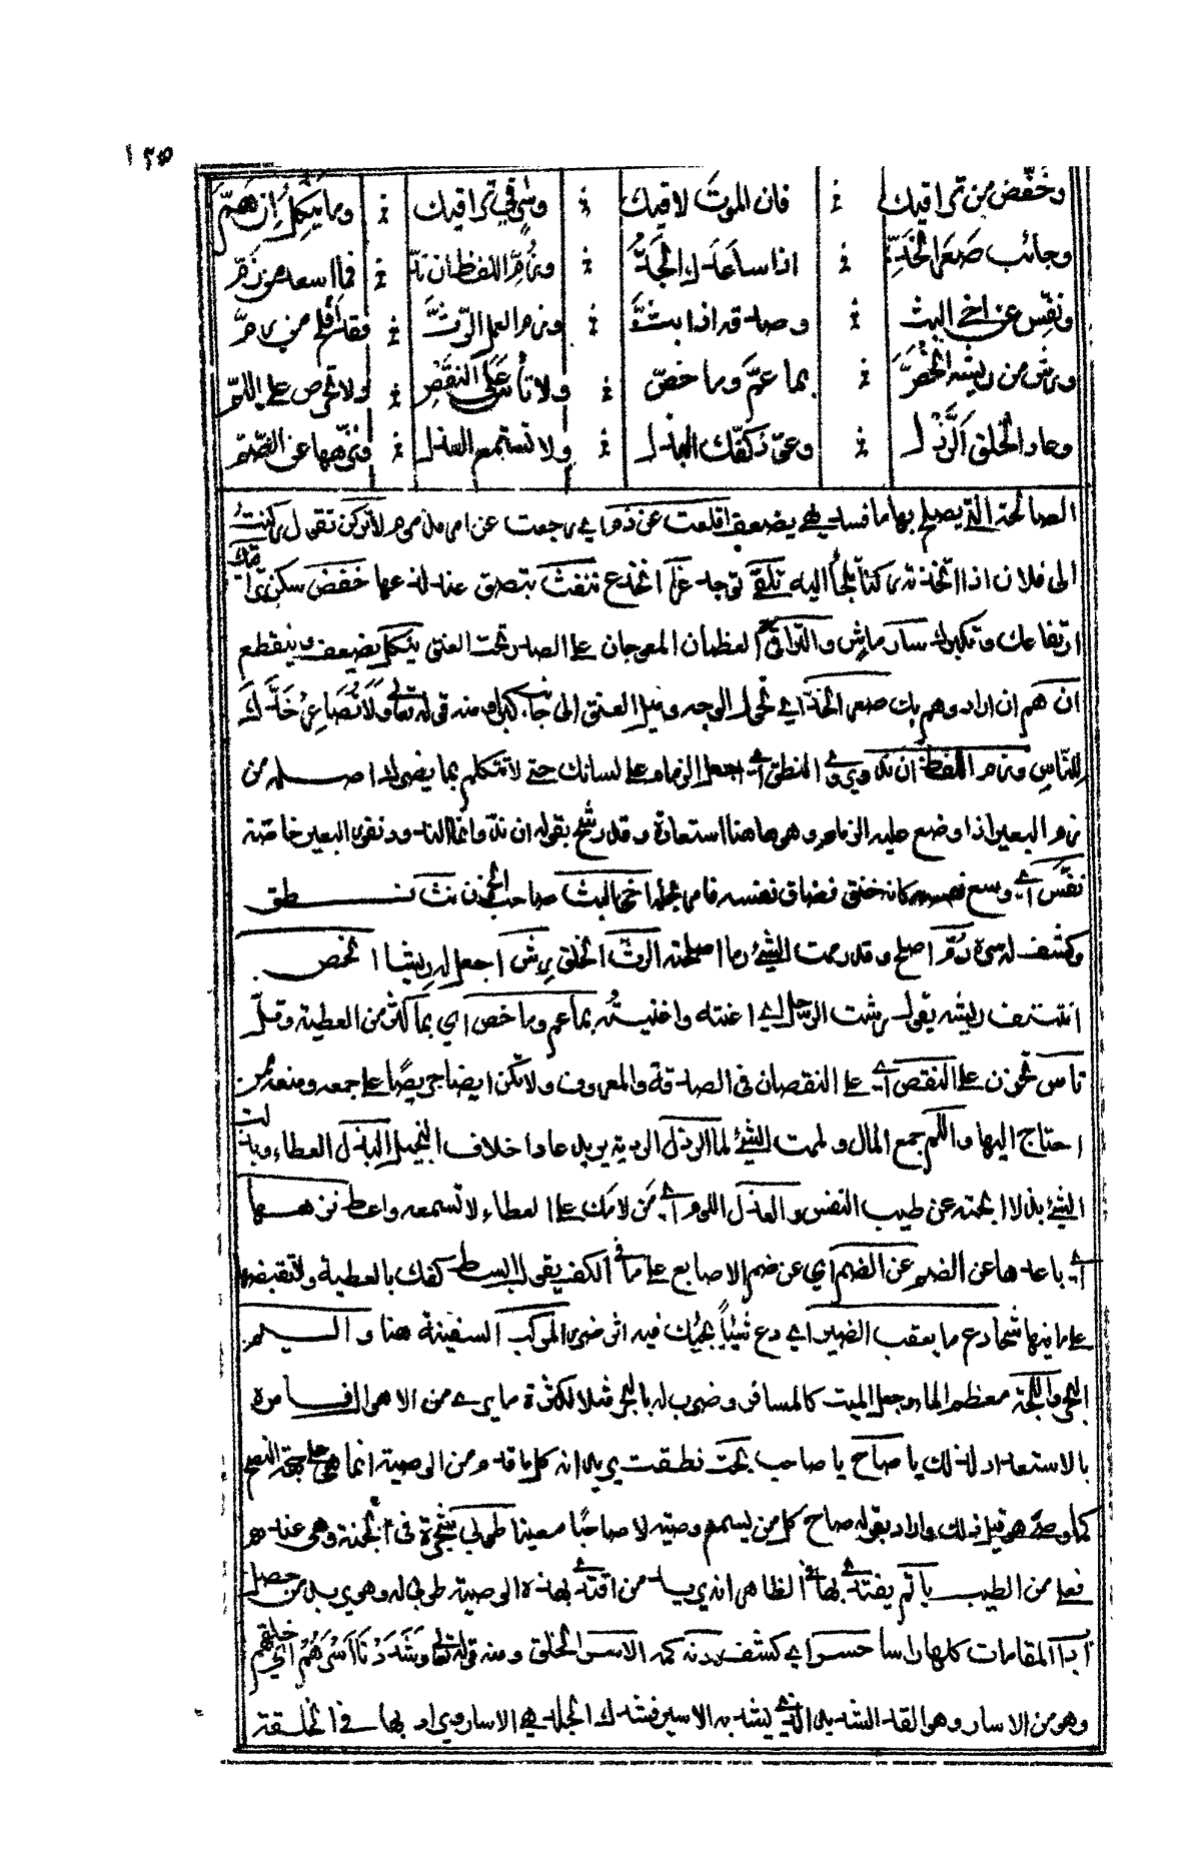 ١٣٥
وخفّض من تراقيك ؞ فان الموت لاقيك ؞ وسارٍ في تراقيك ؞ وما ينكل ان همّ
وجانب صعر الخدّ ؞ اذا ساعدك الجدّ ؞ وزمّ اللفظ ان ندّ ؞ فما اسعد من زمّ
ونفّس عن اخي البث ؞ وصدقه اذا بثّ ؞ ورم العمل الرّثّ ؞ فقد افلح من رمّ
ورش من ريشه انحصّ ؞ بما عمّ وما خصّ ؞ ولا تأس على النقص ؞ ولا تحرص على اللمّ
وعاد الخلق الرّذل ؞ وعوّد كفّك البذل ؞ ولا تستمع العذل ؞ ونزّهها عن الضمّ
الصالحة التي يصلح بها ما فسد يضعف اقلعت عن ذم اي رجعت عن امر مذموم لا تركن تقول ركنت
الى فلان اذا اتخذته ركنا تلجأ اليه تلقى توجد غرّ انخدع تنفث تبصق عند لدغها خفض سكن تراقيك
ارتفاعك وتكبرك سار ماش والتراقي العظمان المعوجان على الصدر تحت العنق ينكل يضعف وينقطع
ان همّ ان اراد وهم بك صعر الخدّ اي تحول الوجه وميل العنق الى جانب كبرا ومنه قوله تعالى ولا تصاعر خدّك
للنّاس وزم اللفظ ان ندّ وفي النطق اي اجعل الزمام على لسانك حتى لا تتكلم بما يضر لك اصله من
زم البعير اذا وضع عليه الزمام وهو هاهنا استعارة وقد رشح بقوله ان ندّ وانما الندود نفور البعير خاصة
نفّس اي وسع نفسه كانه خنق فضاق نفسه فامر بحله اخي البث صاحب الحزن نث نطق
وكشف له سره رمّ اصلح وقد رممت الشيء رما اصلحته الرث الخلق رش اجعل له ريشا انحص
انتتف ريشه يقول رشت الرجل اي اعنته واغنيته بما عم وما خص اي بما كثر من العطية وقلّ
تاس تحزن على النقص اي على النقصان في الصدقة والمعروف ولا تكن ايضا حريصًا على جمعه ومنعه من
احتاج اليها واللم جمع المال ولممت الشيء لما الرذل الردي يريد عاد اخلاف البخيل البذل العطاء وبذلت
الشيء بذلا ابحته عن طيب النفس والعذل اللوم اي من لامك على العطاء لا تسمعه واعط نزهها
اي باعدها عن الضم عن الضم اي عن ضم الاصابع على ما في الكف يقول ابسط كفك بالعطية ولا تقبضها
على ما فيها شحا دع ما يعقب الضير اي دع شيئاً يجيك فيه اثر ضر المركب السفينة هنا واليم
البحر واللجة معظم الماء وجعل الميت كالمسافر وضرب له بالبحر مثلا لكثرة ما يرى من الاهوال فامره
بالاستعداد لذلك يا صاح يا صاحب بحت نطقت يريد انه كل ما قدم من الوصية انما هي على جهة النصح
كما وصى هو قبل ذلك واراد بقوله صاح كل من يسمع وصيته لا صاحبًا معينا طوبى شجرة في الجنة وهي عندهم
فعلى من الطيب ياتم يقتدي بها الظاهر انه يريد من اقتدى بهذه الوصية طوبى له وهو يريد من حصل
اداب المقامات كلها راسا حسر اي كشف ردنه كمه الاسر الخلق ومنه قوله تعالى وشددنا اسرهم اي خلقهم
وهو من الاسار وهو القد الشديد الذي يشد به الاسير فتشد لك الجلد هي الاسار ويراد بها في الخلقة